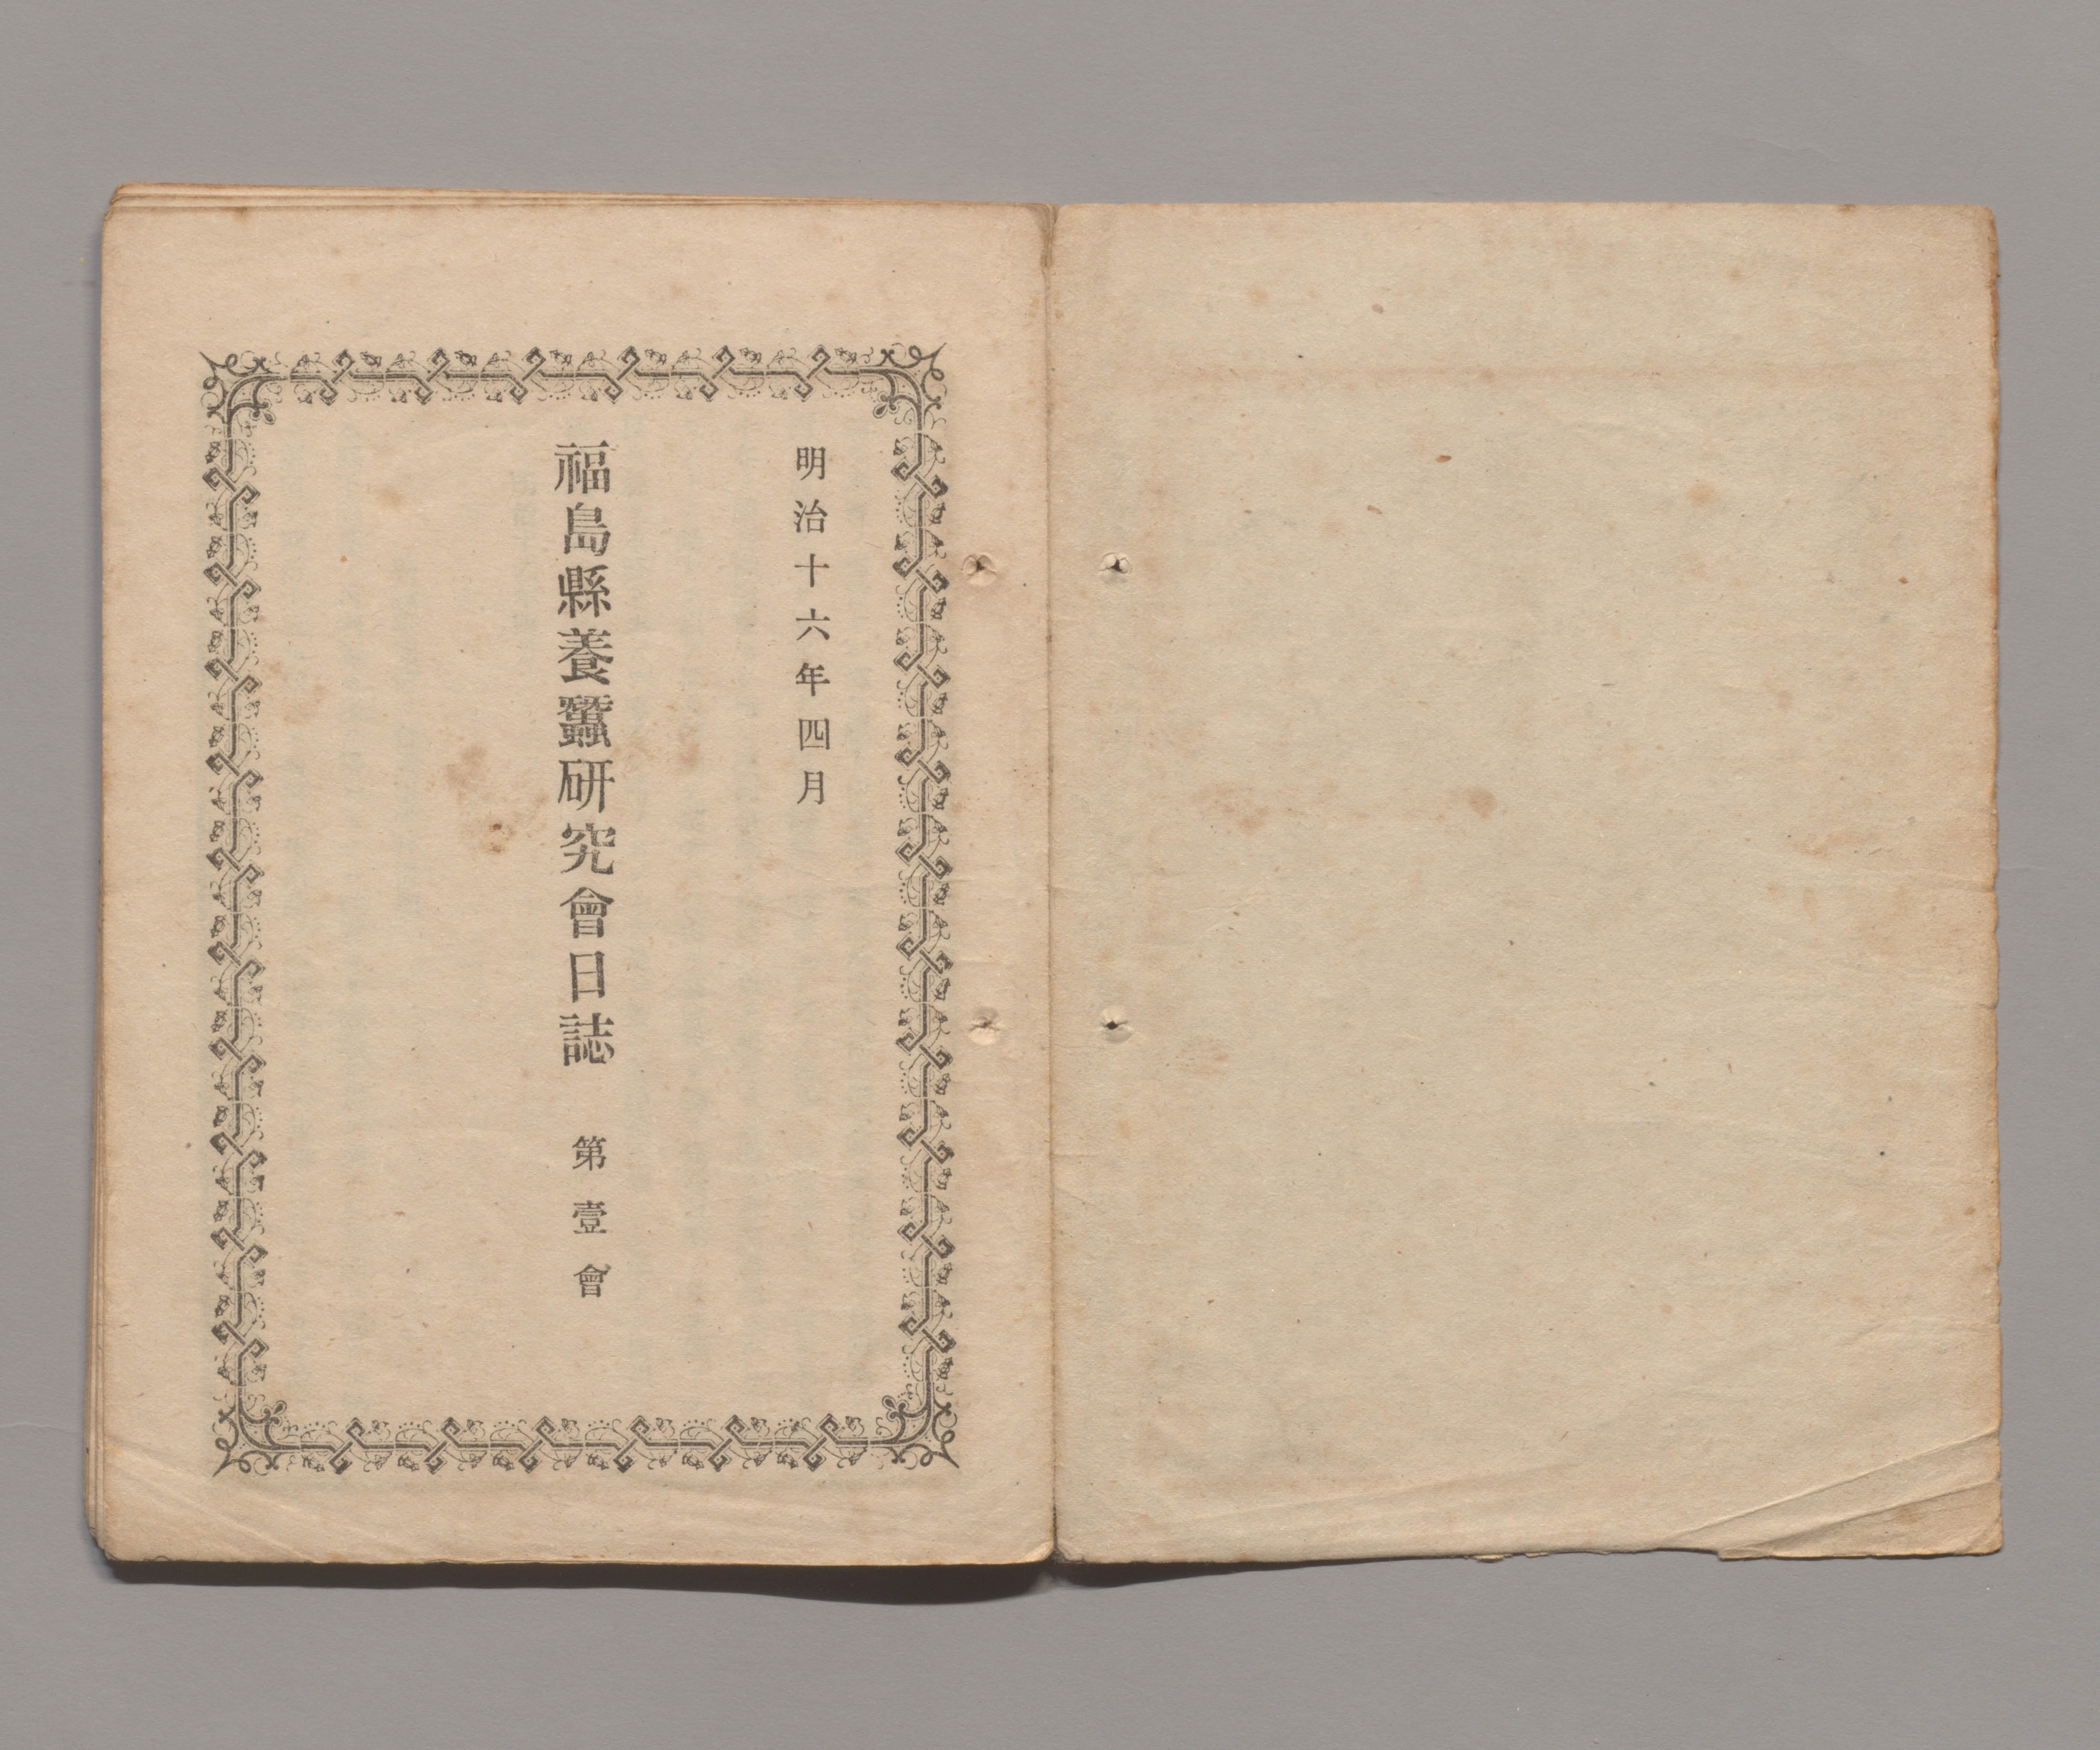 明治十六年四月
福島縣養蠶研究會日誌 第壹會